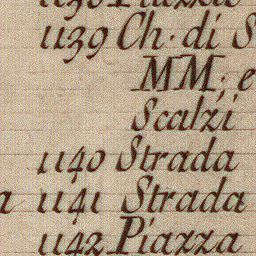 1138 Piazza
1139 Ch. di S
MM; e
Scalzi
1140 Strada
a 1141 Strada
1142 Piazza